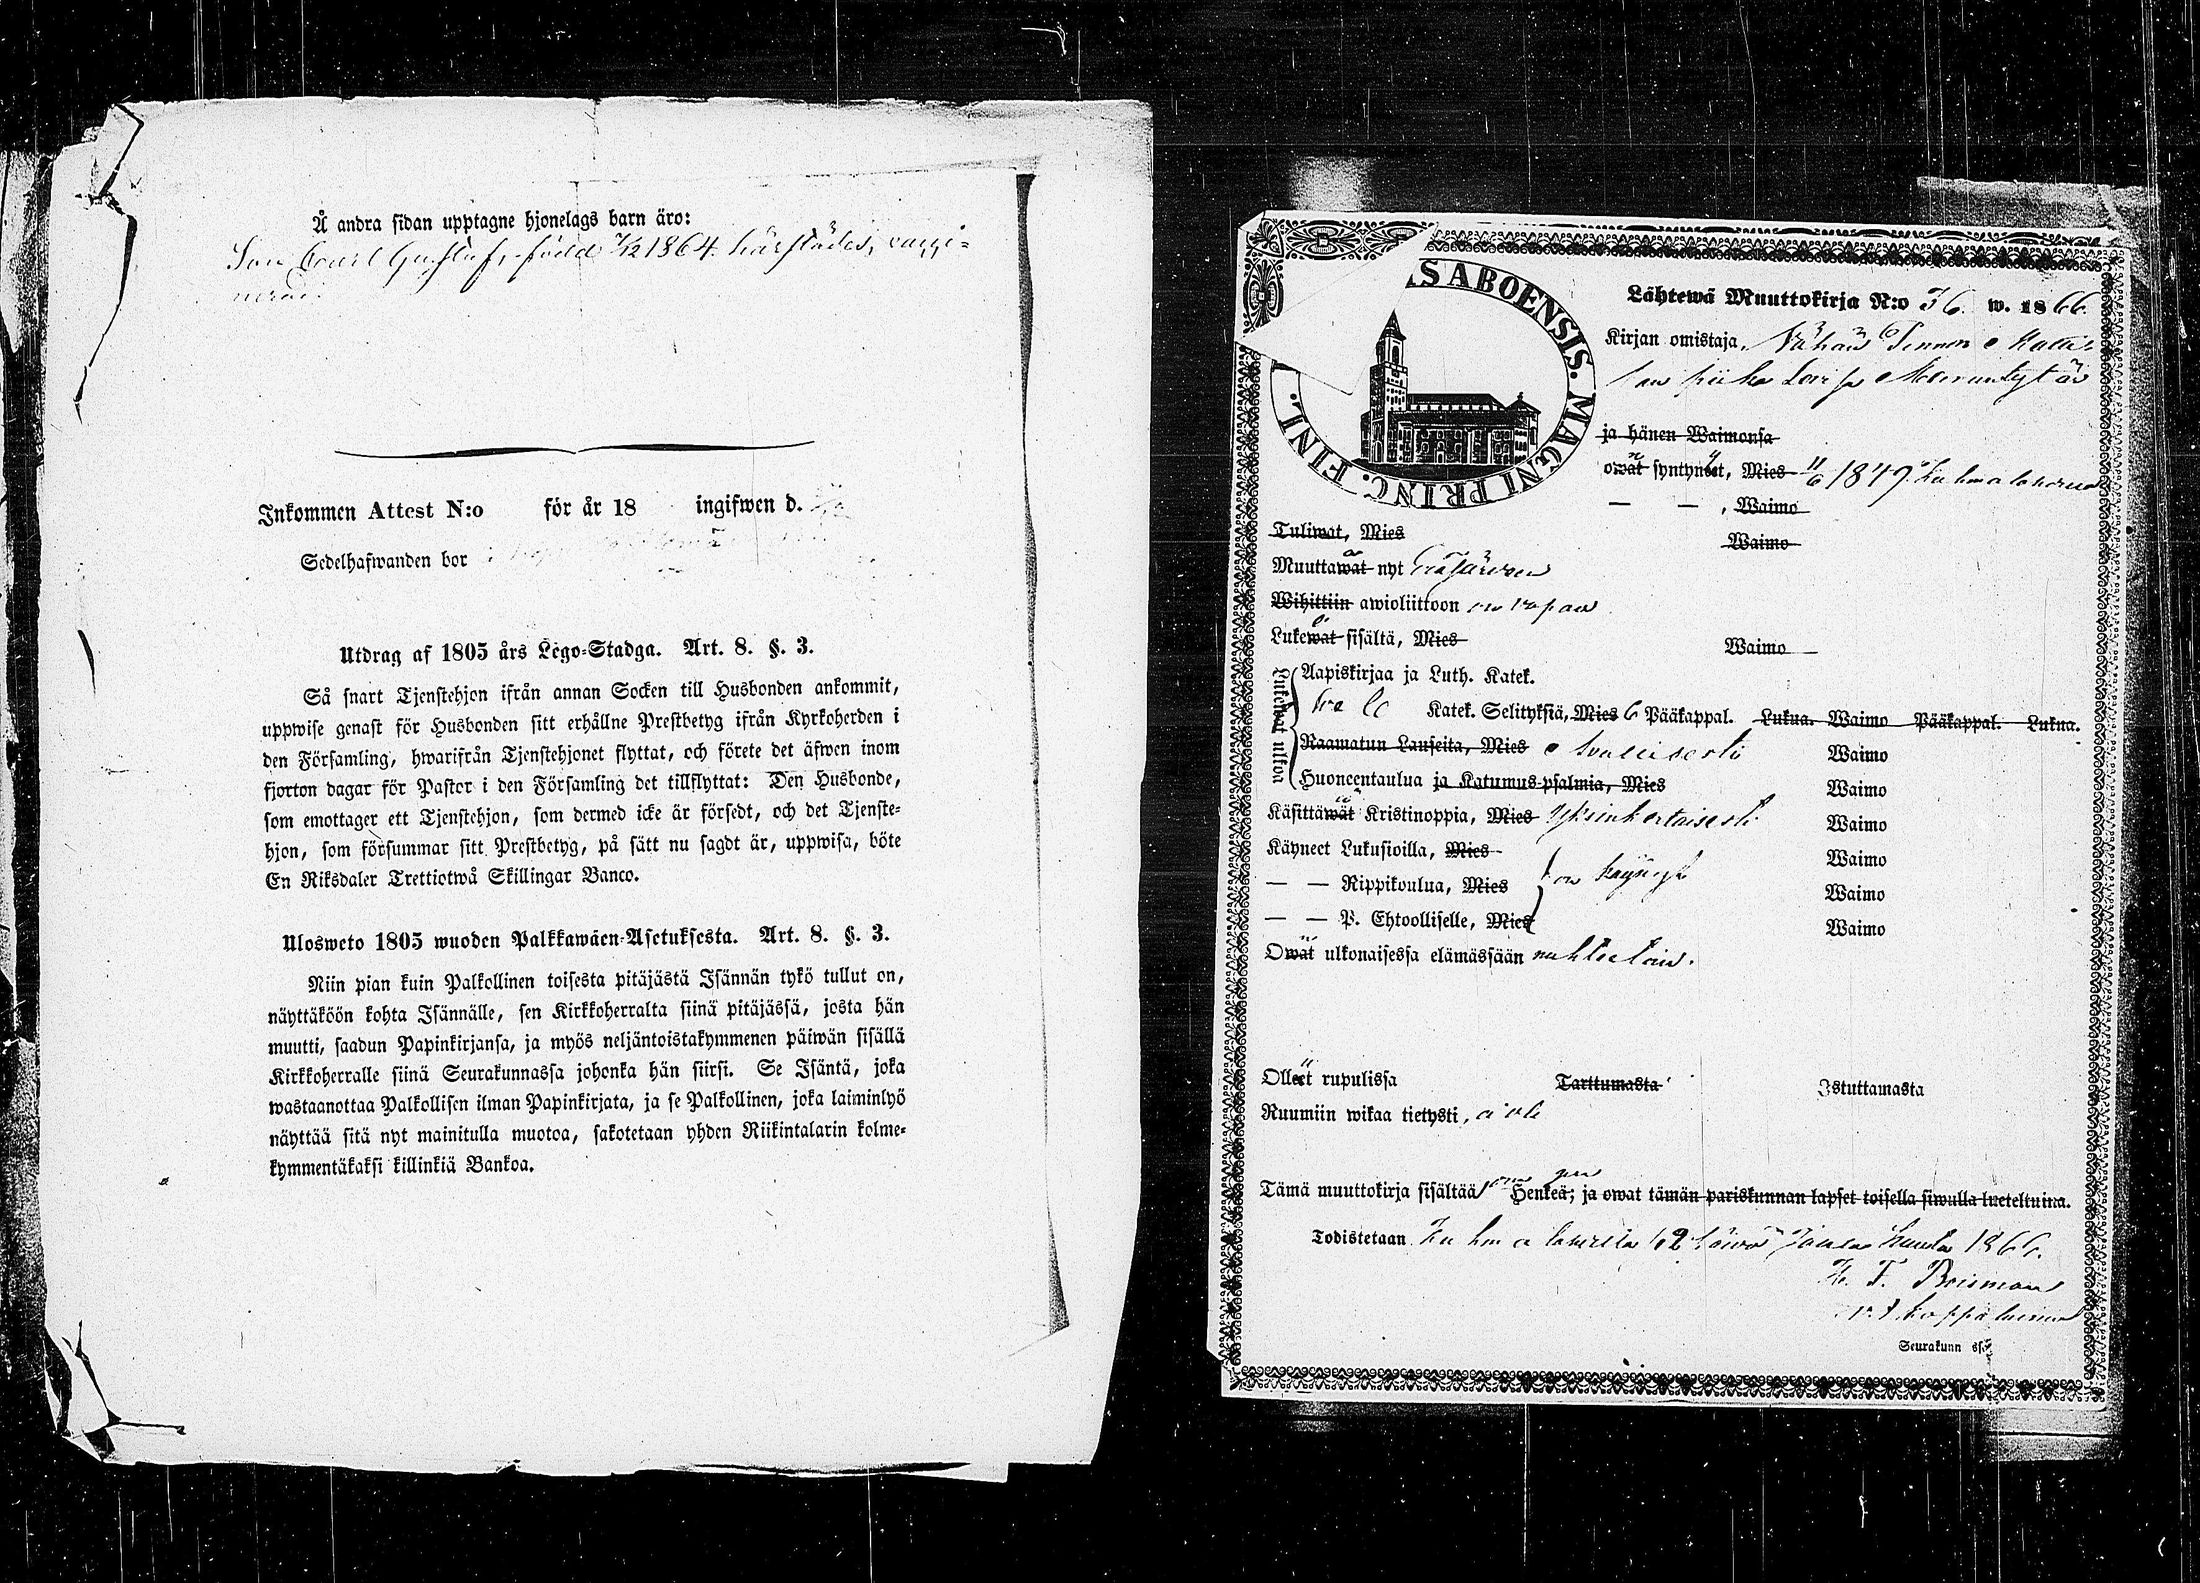 Å andra sidan upptagne hjonelags barn äro:
Son Carl Gustaf, född 7/12 1864 härstädes, vacci-
nerad.
Inkommen Attest N:o för år 18 ingifwen d.
Sedelhafwanden bor
Utdrag af 1805 års Lego-Stadga. Art. 8. §. 3.
Så snart Tjenstehjon ifrån annan Socken till Husbonden ankommit,
uppwise genast för Husbonden sitt erhållne Prestbetyg ifrån Kyrkoherden i
den Församling, hwarifrån Tjenstehjonet flyttat, och förete det äfwen inom
fjorton dagar för Pastor i den Församling det tillflyttat: Den Husbonde,
som emottager ett Tjenstehjon, som dermed icke är försedt, och det Tjenste-
hjon, som försummar sitt Prestbetyg, på sätt nu sagdt är, uppwisa, böte
En Riksdaler Trettiotwå Skillingar Banco.
Ulosweto 1805 wuoden Palkkawäen-Asetuksesta. Art. 8. §. 3.
Niin pian kuin Palkollinen toisesta pitäjästä Isännän tykö tullut on,
näyttäköön kohta Isännälle, sen Kirkkoherralta siinä pitäjässä, josta hän
muutti, saadun Papinkirjansa, ja myös neljäntoistakymmenen päiwän sisällä
Kirkkoherralle siinä Seurakunnassa johonka hän siirsi. Se Isäntä, joka
wastaanottaa Palkollisen ilman Papinkirjata, ja se Palkollinen, joka laiminlyö
näyttää sitä nyt mainitulla muotoa, sakotetaan yhden Riikintalarin kolme-
kymmentäkaksi killinkiä Bankoa.
S ABOENSIS. MAGNI PRINC. FINL.
Lähtewä Muuttokirja N:o 36. w. 1866.
Kirjan omistaja,
piika Lovisa
ja hänen Waimonsa
owat syntyneet, Mies 11/6 1849 Kuhmalahdella
— — , Waimo
Tuliwat, Mies Waimo
Muuttawat nyt
Wihittiin awioliittoon on vapaa
Lukewat sisältä, Mies Waimo
Lukewat ulkoa
Aapiskirjaa ja Luth. Katek.
Katek. Selityksiä, Mies 6 Pääkappal. Lukua. Waimo Pääkappal. Lukua.
Raamatun Lauseita, Mies Waimo
Huoneentaulua ja Katumus-psalmia, Mies Waimo
Käsittäwät Kristinoppia, Mies Yksinkertaisesti Waimo
Käyneet Lukusioilla, Mies Waimo
— — Rippikoulua, Mies on käynyt Waimo
— — P. Ehtoolliselle, Mies Waimo
Owat ulkonaisessa elämässään nuhteetoin.
Olleet rupulissa Tarttumasta Istuttamasta
Ruumiin wikaa tietysti, ei ole
Tämä muuttokirja sisältää Henkeä; ja owat tämän pariskunnan lapset toisella siwulla lueteltuina.
Todistetaan Kuhmalahdella 12 1866.
Seurakunnassa